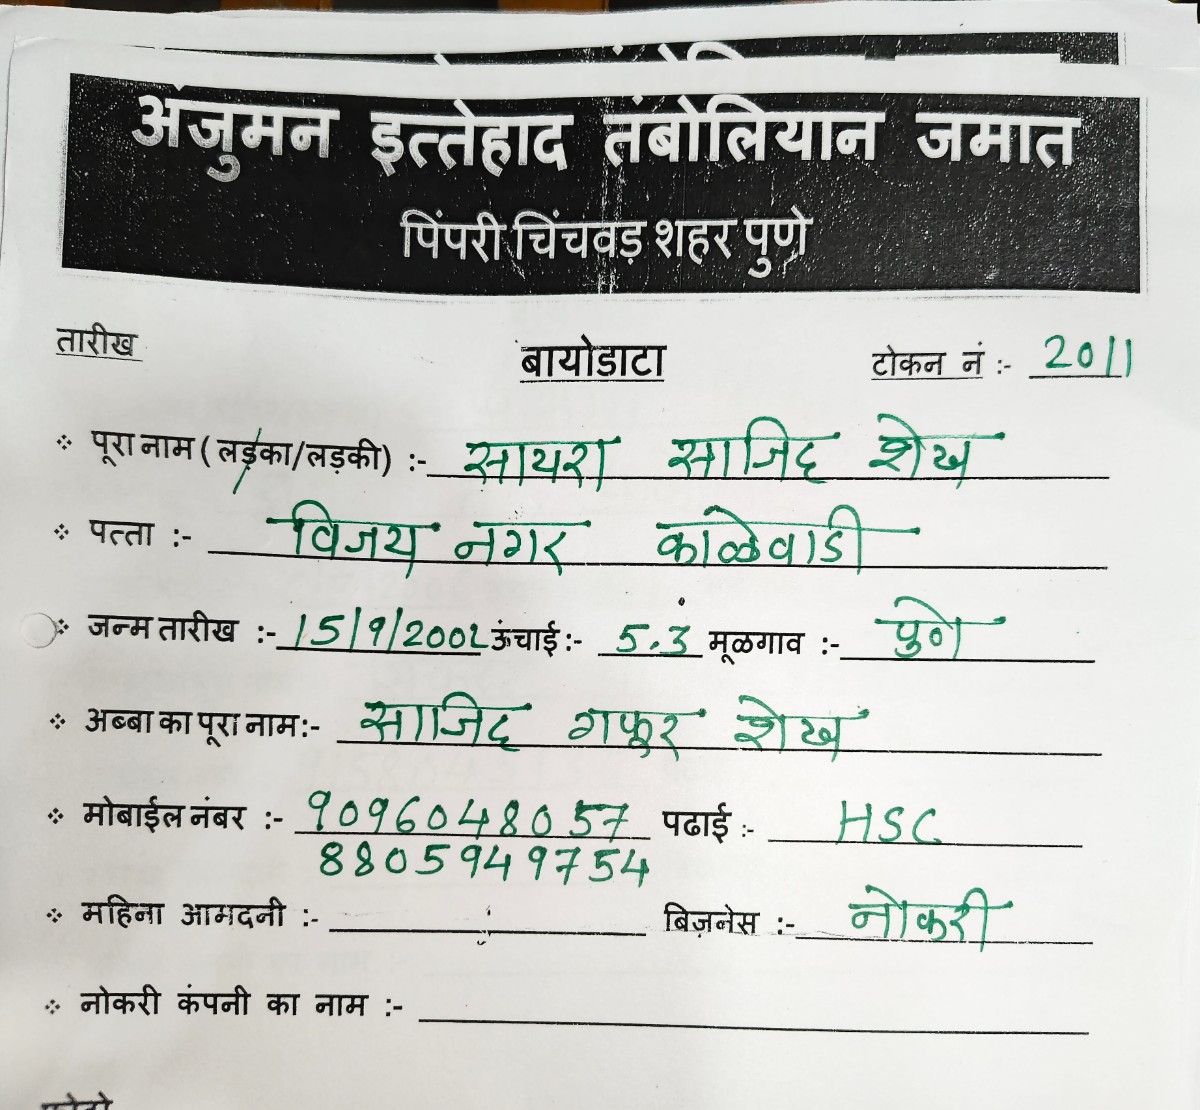 अंजुमन इत्तेहाद तंबोलियान जमात
पिंपरी चिंचवड़ शहर पुणे
तारीख बायोडाटा टोकन नं :- 2011
पूरा नाम ( लड़का/लड़की) :- सायरा साजिद शेख
पत्ता :- विजय नगर काळेवाडी
जन्म तारीख :- 15/9/2002 ऊंचाई:- 5.3 मूळगाव :- पुणे
अब्बा का पूरा नाम:- साजिद गफूर शेख
मोबाईल नंबर :- 9096048057 पढाई :- HSC
8805949754
महिना आमदनी :- बिज़नेस :- नोकरी
नोकरी कंपनी का नाम :-